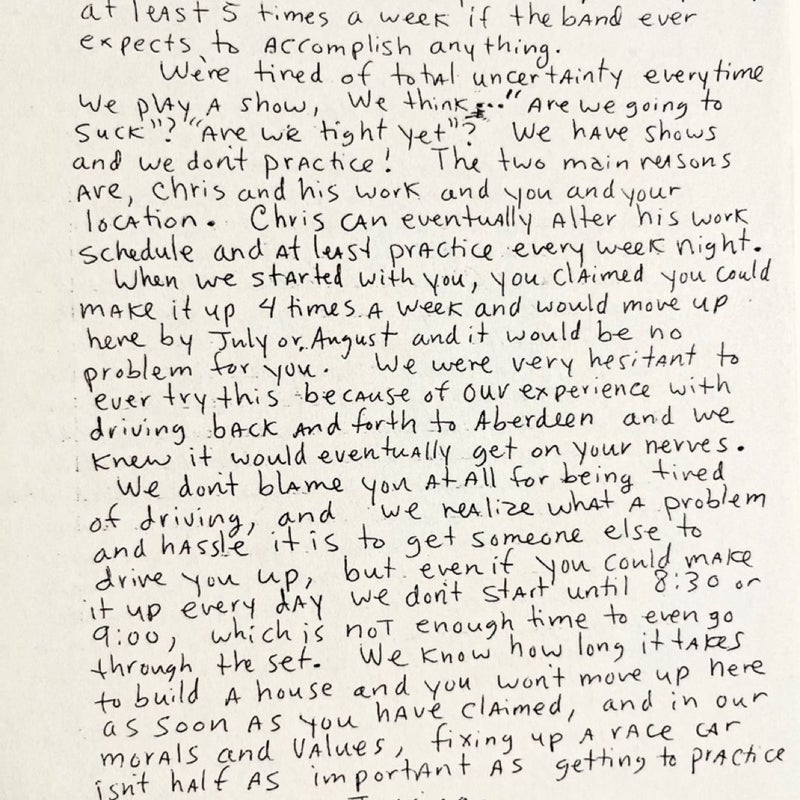 at least 5 times a week if the band ever
expects to accomplish anything.
We're tired of total uncertainty everytime
we play a show, We think... "Are we going to
suck"? "Are we tight yet"? We have shows
and we don't practice! The two main reasons
are, Chris and his work and you and your
location. Chris can eventually alter his work
schedule and at least practice every week night.
When we started with you, you claimed you could
make it up 4 times a week and would move up
here by July or, August and it would be no
problem for you. We were very hesitant to
ever try this because of our experience with
driving back and forth to Aberdeen and we
knew it would eventually get on your nerves.
We don't blame you at all for being tired
of driving, and we realize what a problem
and hassle it is to get someone else to
drive you up, but even if you could make
it up every day we don't start until 8:30 or
9:00, which is not enough time to even go
through the set. We know how long it takes
to build a house and you won't move up here
as soon as you have claimed, and in our
morals and values, fixing up a race car
isn't half as important as getting to practice